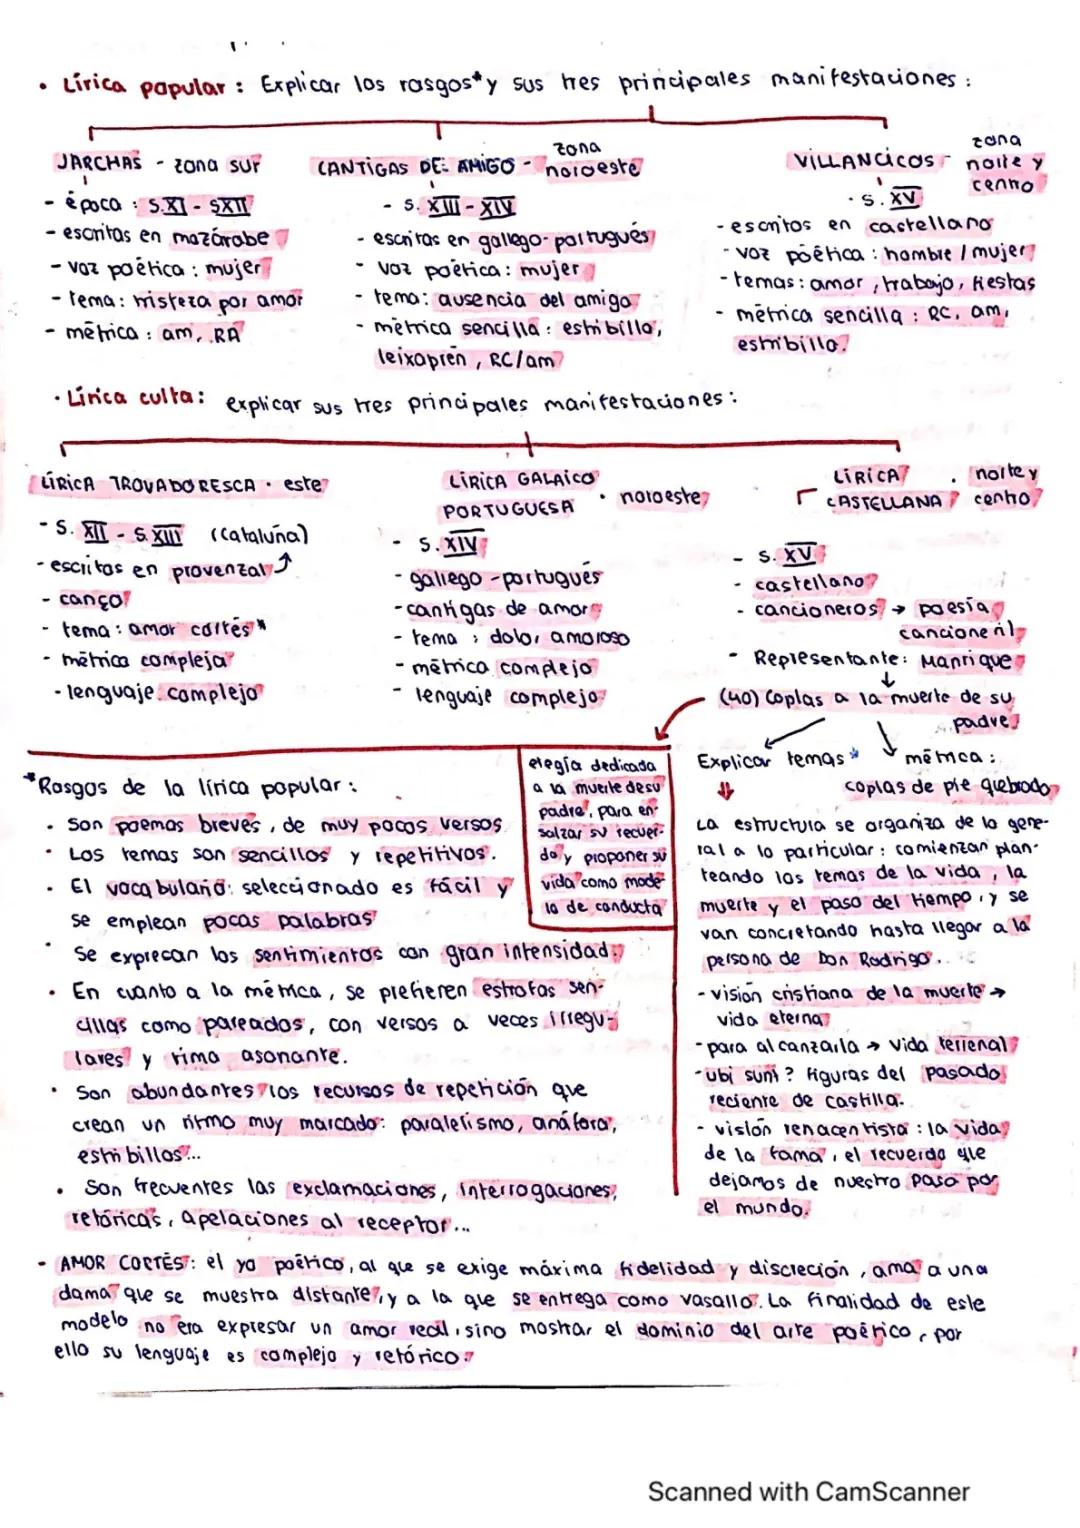 • Lírica popular : Explicar los rasgos* y sus tres principales manifestaciones :
JARCHAS - zona sur
- época : S.XI - SXII
- escritas en mozárabe
- voz poética : mujer
- tema : tristeza por amor
- métrica : am, RA
CANTIGAS DE AMIGO - zona noroeste
- S. XIII - XIV
- escritas en gallego-portugués
- voz poética : mujer
- tema : ausencia del amigo
- métrica sencilla : estribillo,
leixaprén, RC/am
VILLANCICOS - zona
norte y
centro
· S. XV
- escritos en castellano
- voz poética : hombre / mujer
- temas : amor, trabajo, fiestas
- métrica sencilla : RC, am,
estribillo.
· Lírica culta : explicar sus tres principales manifestaciones :
LÍRICA TROVADORESCA · este
- S. XII - S. XIII (Cataluña)
- escritos en provenzal
- cançó
- tema : amor cortés *
- métrica compleja
- lenguaje complejo
LÍRICA GALAICO
PORTUGUESA · noroeste
- S. XIV
- gallego - portugués
- cantigas de amor
- tema : dolor amoroso
- métrica compleja
- lenguaje complejo
LÍRICA
CASTELLANA · norte y
centro
- S. XV
- castellano
- cancioneros → poesía
cancioneril
- Representante : Manrique
↓
(40) Coplas a la muerte de su
padre
Explicar temas *
métrica :
coplas de pie quebrado
elegía dedicada
a la muerte de su
padre, para en-
salzar su recuer-
do y proponer su
vida como mode-
lo de conducta
La estructura se organiza de lo gene-
ral a lo particular : comienzan plan-
teando los temas de la vida, la
muerte y el paso del tiempo, y se
van concretando hasta llegar a la
persona de Don Rodrigo.
- visión cristiana de la muerte →
vida eterna
- para alcanzarla → vida terrenal
- ubi sunt? figuras del pasado
reciente de Castilla.
- visión renacentista : la vida
de la fama, el recuerdo que
dejamos de nuestro paso por
el mundo.
*Rasgos de la lírica popular :
· Son poemas breves, de muy pocos versos
· Los temas son sencillos y repetitivos.
· El vocabulario seleccionado es fácil y
se emplean pocas palabras
· Se expresan los sentimientos con gran intensidad.
· En cuanto a la métrica, se prefieren estrofas sen-
cillas como pareados, con versos a veces irregu-
lares y rima asonante.
· Son abundantes los recursos de repetición que
crean un ritmo muy marcado : paralelismo, anáfora,
estribillos...
· Son frecuentes las exclamaciones, interrogaciones,
retóricas, apelaciones al receptor...
• AMOR CORTÉS : el yo poético, al que se exige máxima fidelidad y discreción, ama a una
dama que se muestra distante, y a la que se entrega como vasallo. La finalidad de este
modelo no era expresar un amor real, sino mostrar el dominio del arte poético, por
ello su lenguaje es complejo y retórico.
Scanned with CamScanner